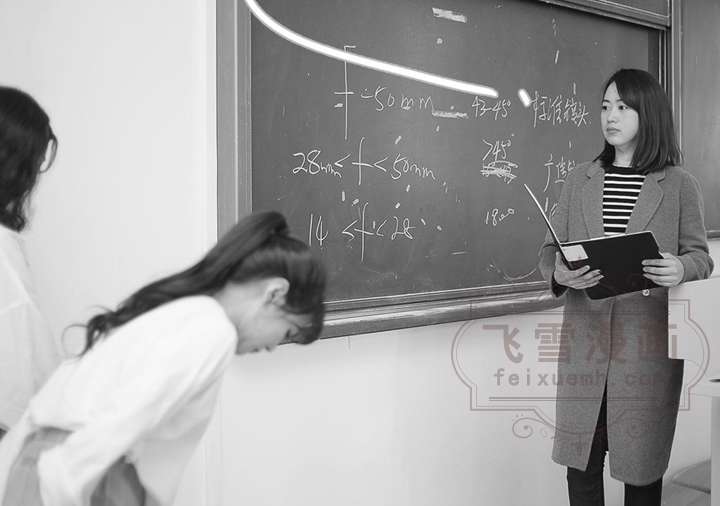 f=50mm 43-45° 标准镜头
>45°
28mm≤f<50mm 广
14≤f<28 180°
飞雪漫画
feixuemh.com